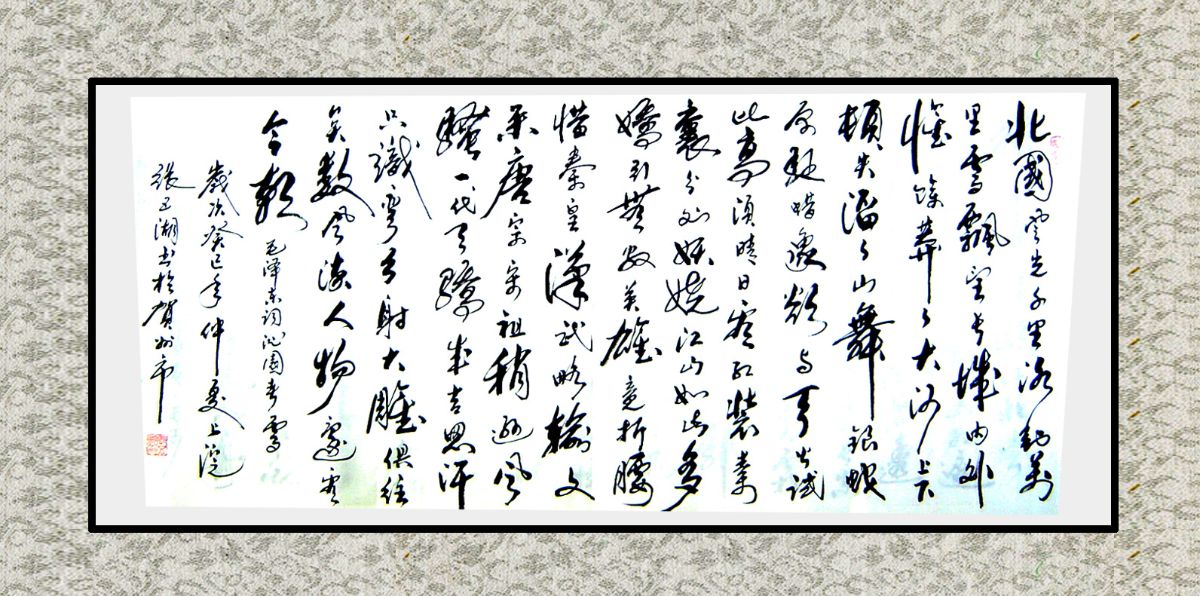 北國风光千里冰封萬
里雪飄望长城内外
惟餘莽々大河上下
頓失滔々山舞銀蛇
原馳蜡象欲与天公試
比高須晴日看红裝素
裹分外妖嬈江山如此多
嬌引無数英雄竟折腰
惜秦皇漢武略輸文
采唐宗宋祖稍遜风
騷一代天驕成吉思汗
只識彎弓射大雕俱往
矣數风流人物還看
今朝 毛泽东词沁園春雪
歲次癸巳年仲夏上浣
張 湖书於賀州市